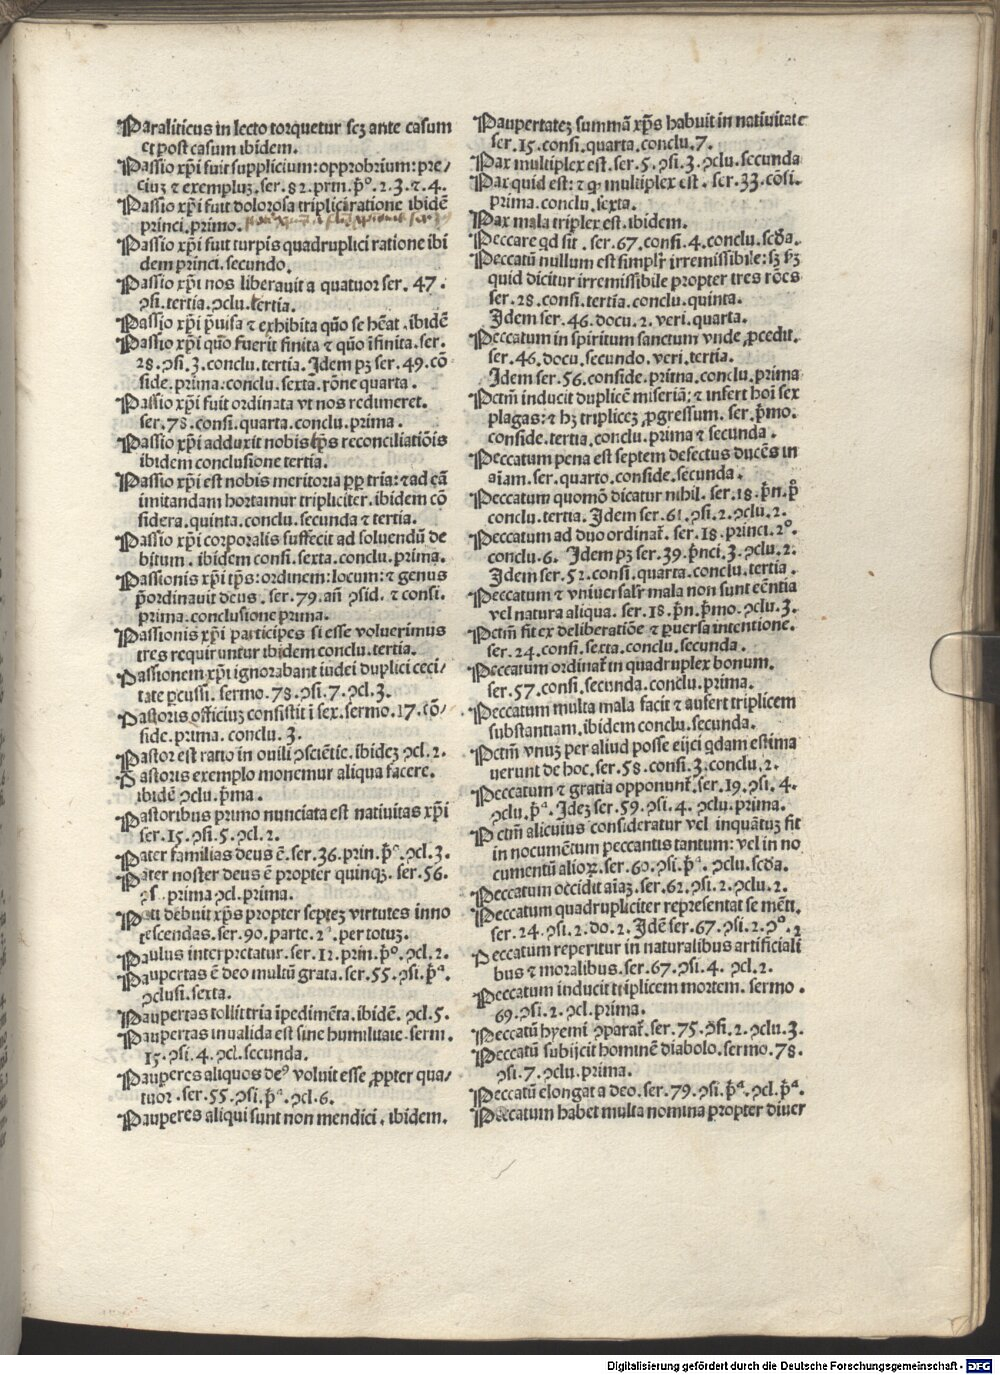 Paraliticus in lecto torquetur scꝫ ante casum
et post casum ibidem.
Passio xp̄i fuit supplicium: opprobrium: pre/
ciuꝫ ⁊ exempluꝫ. ser. 82. prin. p̄º. 2. 3. ⁊. 4.
Passio xp̄i fuit dolorosa triplici ratione ibidē
princi. primo.
Passio xp̄i fuit turpis quadruplici ratione ibi
dem princi. secundo.
Passio xp̄i nos liberauit a quatuor ser. 47.
ꝯsi. tertia. ꝯclu. tertia.
Passio xp̄i p̄uisa ⁊ exhibita quō se hēat. ibidē
Passio xp̄i quō fuerit finita ⁊ quō īfinita. ser.
28. ꝯsi. 3. conclu. tertia. Idem pꝫ ser. 49. cō
side. prima. conclu. sexta. rōne quarta.
Passio xp̄i fuit ordinata vt nos redimeret.
ser. 78. consi. quarta. conclu. prima.
Passio xp̄i adduxit nobis tp̄s reconciliatiōis
ibidem conclusione tertia.
Passio xp̄i est nobis meritoria pp̄ tria: ⁊ ad eā
imitandam hortamur tripliciter. ibidem cō
sidera. quinta. conclu. secunda ⁊ tertia.
Passio xp̄i corporalis suffecit ad soluendū de
bitum. ibidem consi. sexta. conclu. prima.
Passionis xp̄i tp̄s: ordinem: locum: ⁊ genus
p̄ordinauit deus. ser. 79. añ ꝯsid. ⁊ consi.
prima. conclusione prima.
Passionis xp̄i participes si esse voluerimus
tres requiruntur ibidem conclu. tertia.
Passionem xp̄i ignorabant iudei duplici ceci/
tate ꝑcussi. sermo. 78. ꝯsi. 7. ꝯcl. 3.
Pastoris officiuꝫ consistit ī sex. sermo. 17. cō/
side. prima. conclu. 3.
Pastor est ratio in ouili ꝯsciētie. ibideꝫ ꝯcl. 2.
Pastoris exemplo monemur aliqua facere.
ibidē ꝯclu. p̄ma.
Pastoribus primo nunciata est natiuitas xp̄i
ser. 15. ꝯsi. 5. ꝯcl. 2.
Pater familias deus ē. ser. 36. prin. p̄º. ꝯcl. 3.
Pater noster deus ē propter quinqꝫ. ser. 56.
ꝯsi. prima ꝯcl. prima.
Pati debuit xp̄s propter septeꝫ virtutes inno
tescendas. ser. 90. parte. 2ª. per totuꝫ.
Paulus interpretatur. ser. 12. prin. p̄º. ꝯcl. 2.
Paupertas ē deo multū grata. ser. 55. ꝯsi. p̄ª.
ꝯclusi. sexta.
Paupertas tollit tria īpedimēta. ibidē. ꝯcl. 5.
Paupertas inualida est sine humilitate. serm.
15. ꝯsi. 4. ꝯcl. secunda.
Pauperes aliquos deꝰ voluit esse ꝓpter qua/
tuor. ser. 55. ꝯsi. p̄ª. ꝯcl. 6.
Pauperes aliqui sunt non mendici. ibidem.
Paupertateꝫ summā xp̄s habuit in natiuitate
ser. 15. consi. quarta. conclu. 7.
Pax multiplex est. ser. 5. ꝯsi. 3. ꝯclu. secunda
Pax quid est: ⁊ ꝙ multiplex est. ser. 33. cōsi.
prima. conclu. sexta.
Pax mala triplex est. ibidem.
Peccare qd sit. ser. 67. consi. 4. conclu. scd̄a.
Peccatū nullum est simplr̄ irremissibile: sꝫ ẜꝫ
quid dicitur irremissibile propter tres rōes
ser. 28. consi. tertia. conclu. quinta.
Idem ser. 46. docu. 2. veri. quarta.
Peccatum in spiritum sanctum vnde ꝓcedit.
ser. 46. docu. secundo. veri. tertia.
Idem ser. 56. conside. prima. conclu. prima
Pctm̄ inducit duplicē miseriā: ⁊ infert hoī sex
plagas: ⁊ hꝫ tripliceꝫ ꝓgressum. ser. p̄mo.
conside. tertia. conclu. prima ⁊ secunda.
Peccatum pena est septem defectus ducēs in
aīam. ser. quarto. conside. secunda.
Peccatum quomō dicatur nihil. ser. 18. p̄n. p̄º
conclu. tertia. Idem ser. 61. ꝯsi. 2. ꝯclu. 2.
Peccatum ad duo ordinat̄. ser. 18. princi. 2º.
conclu. 6. Idem pꝫ ser. 39. p̄nci. 3. ꝯclu. 2.
Idem ser. 52. consi. quarta. conclu. tertia.
Peccatum ⁊ vniuersalr̄ mala non sunt eēntia
vel natura aliqua. ser. 18. p̄n. p̄mo. ꝯclu. 3.
Pctm̄ fit ex deliberatiōe ⁊ ꝑuersa intentione.
ser. 24. consi. sexta. conclu. secunda.
Peccatum ordinat̄ in quadruplex bonum.
ser. 57. consi. secunda. conclu. prima.
Peccatum multa mala facit ⁊ aufert triplicem
substantiam. ibidem conclu. secunda.
Pctm̄ vnuꝫ per aliud posse eijci qdam estima
uerunt de hoc. ser. 58. consi. 3. conclu. 2.
Peccatum ⁊ gratia opponunt̄. ser. 19. ꝯsi. 4.
ꝯclu. p̄ª. Ideꝫ ser. 59. ꝯsi. 4. ꝯclu. prima.
Pctm̄ alicuius consideratur vel inquātuꝫ fit
in nocumētum peccantis tantum: vel in no
cumentū alioꝝ. ser. 60. ꝯsi. p̄ª. ꝯclu. scd̄a.
Peccatum occidit aīaꝫ. ser. 62. ꝯsi. 2. ꝯclu. 2.
Peccatum quadrupliciter representat se mēti.
ser. 24. ꝯsi. 2. do. 2. Idē ser. 67. ꝯsi. 2.
Peccatum reperitur in naturalibus artificiali
bus ⁊ moralibus. ser. 67. ꝯsi. 4. ꝯcl. 2.
Peccatum inducit triplicem mortem. sermo.
69. ꝯsi. 2. ꝯcl. prima.
Peccatū hyemi ꝯparat̄. ser. 75. ꝯsi. 2. ꝯclu. 3.
Peccatū subijcit hominē diabolo. sermo. 78.
ꝯsi. 7. ꝯclu. prima.
Peccatū elongat a deo. ser. 79. ꝯsi. p̄ª. ꝯcl. p̄ª.
Peccatum habet multa nomina propter diuer
Digitalisierung gefördert durch die Deutsche Forschungsgemeinschaft - DFG